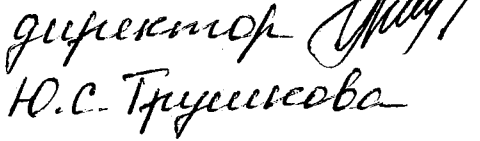 директор
Ю.С. Трушкова